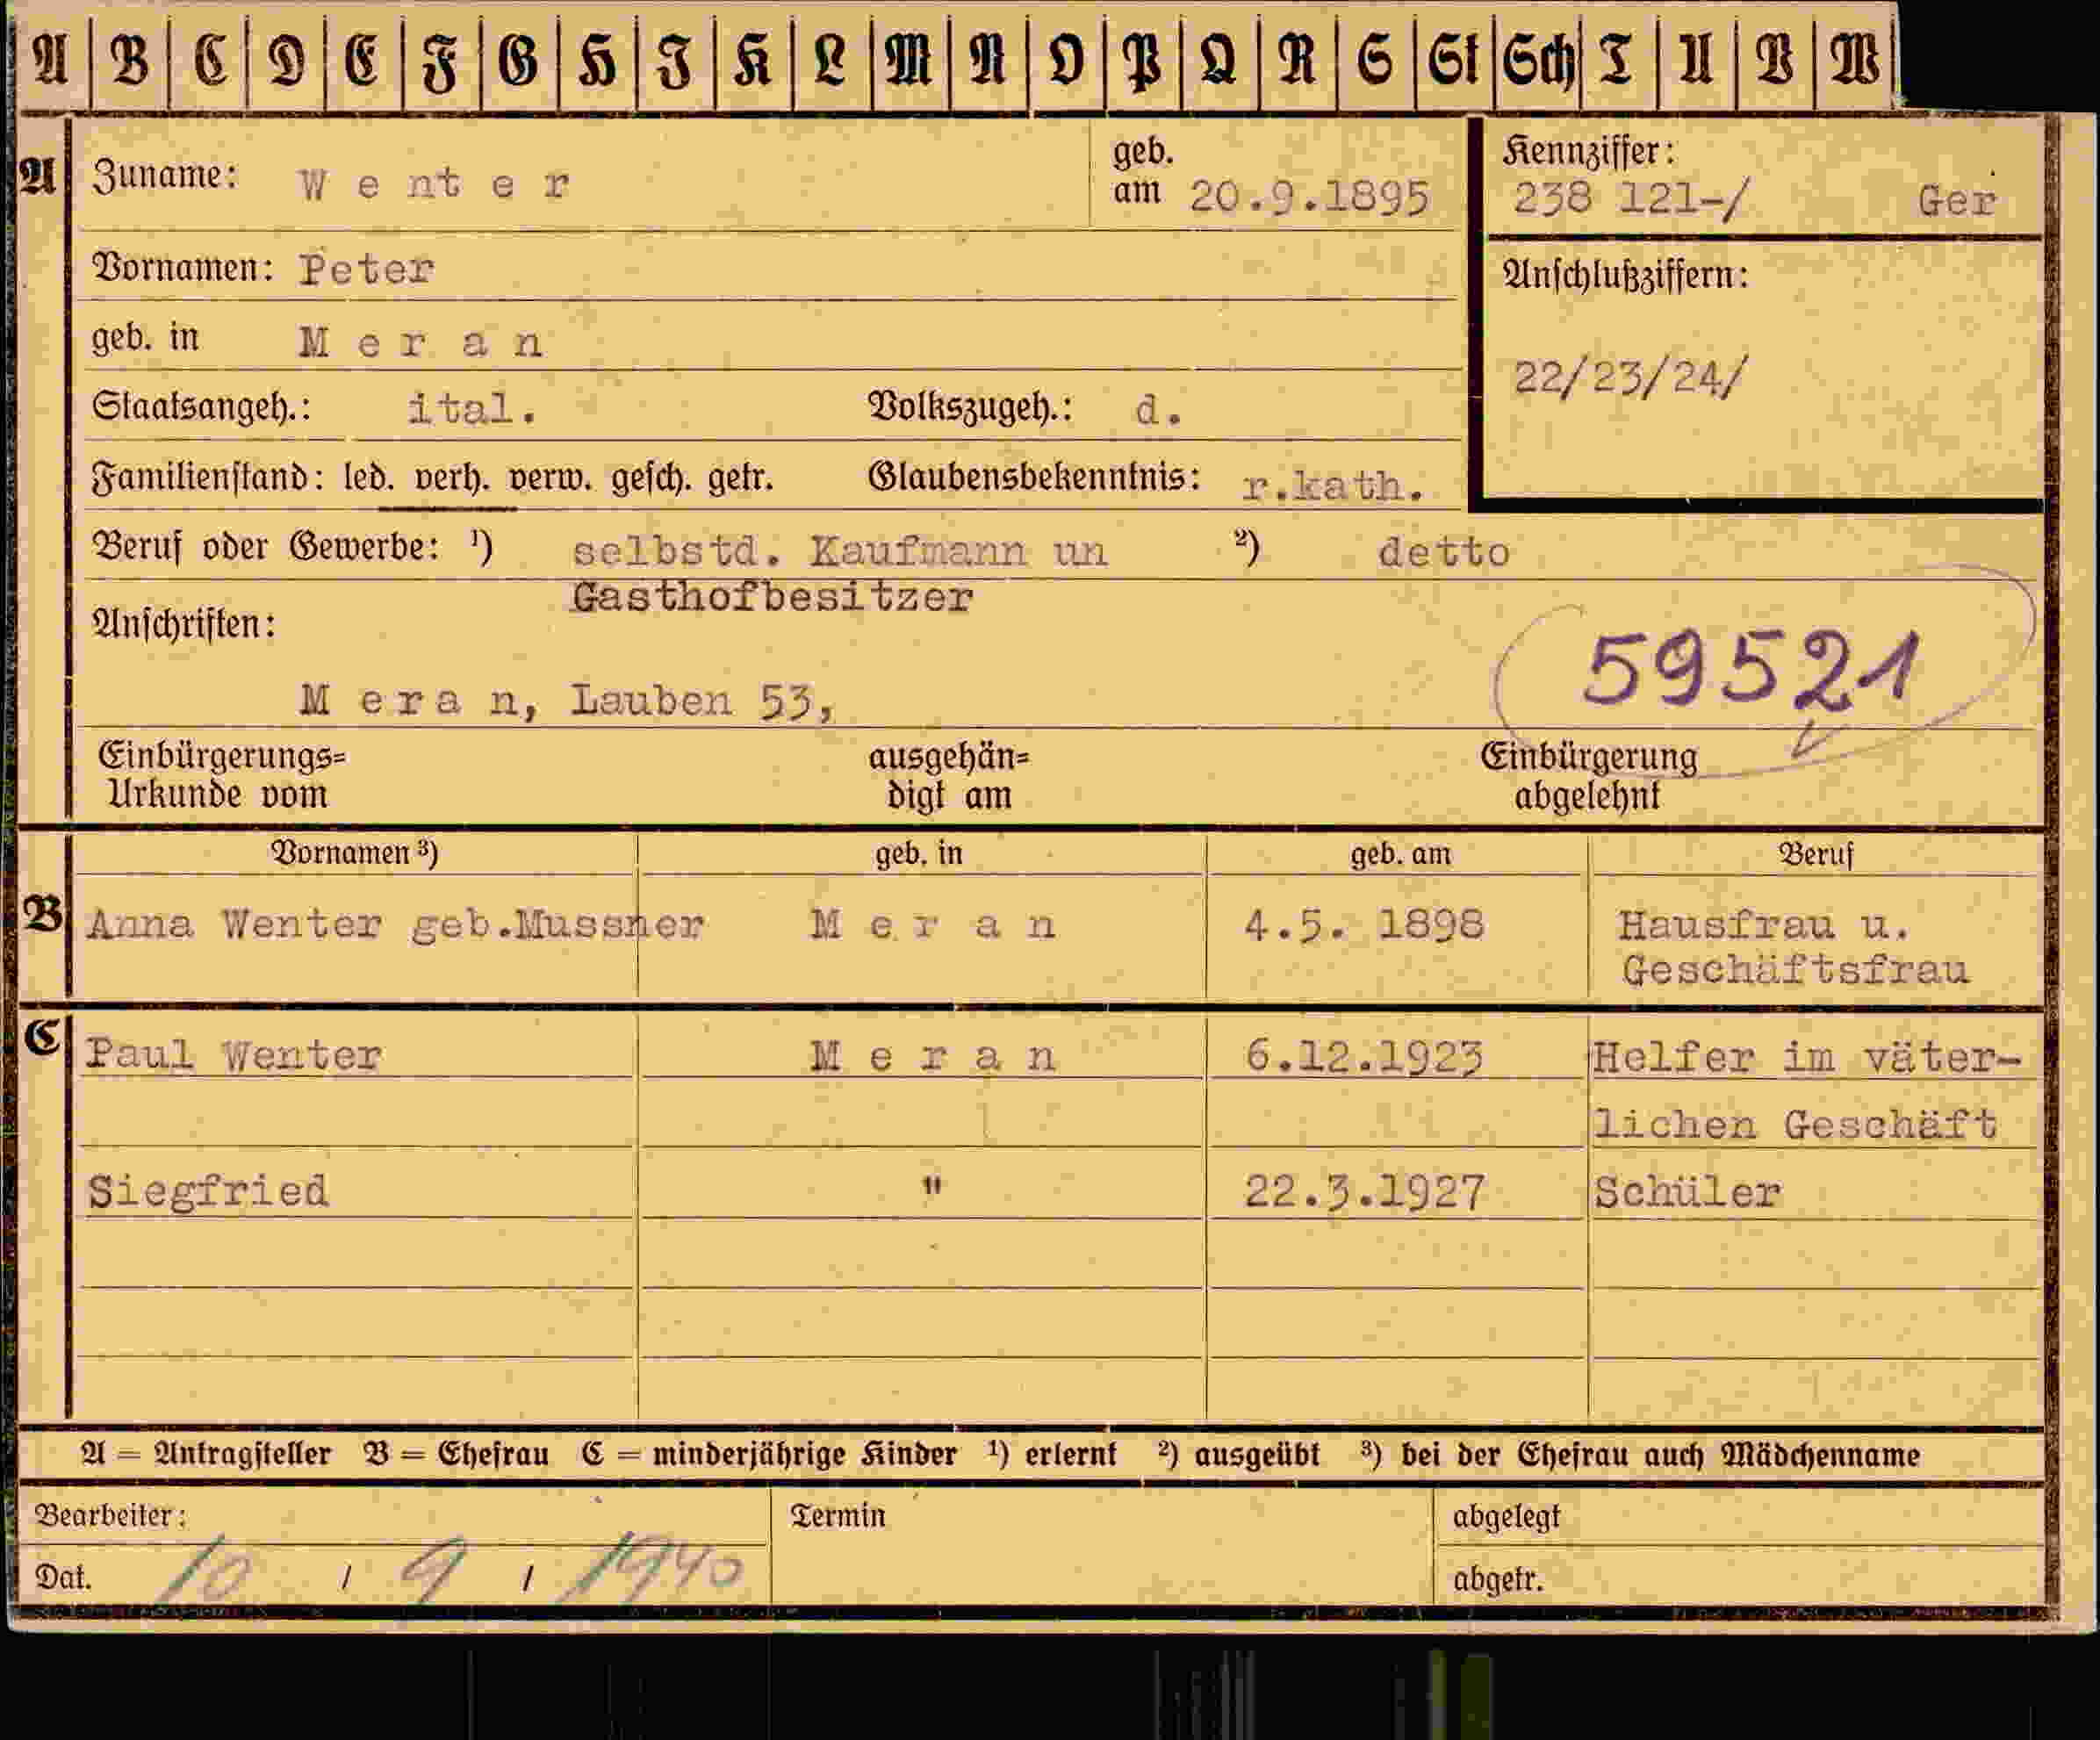 A B C D E F G H J K L M N O P Q R S St Sch T U V W
A Zuname: W e nt e r geb. am 20.9.1895 Kennziffer: 238 121-/ Ger
Vornamen: Peter Anschlußziffern:
geb. in M e r a n 22/23/24/
Staatsangeh.: ital. Volkszugeh.: d.
Familienstand: led. verh. verw. gesch. getr. Glaubensbekenntnis: r.kath.
Beruf oder Gewerbe: ¹) selbstd. Kaufmann un ²) detto
Gasthofbesitzer
Anschriften:
59521
M e r a n, Lauben 53,
Einbürgerungs= ausgehän= Einbürgerung
Urkunde vom digt am abgelehnt
Vornamen ³) geb. in geb. am Beruf
B Anna Wenter geb.Mussner M e r a n 4.5. 1898 Hausfrau u.
Geschäftsfrau
C Paul Wenter M e r a n 6.12.1923 Helfer im väter-
lichen Geschäft
Siegfried " 22.3.1927 Schüler
A = Antragsteller B = Ehefrau C = minderjährige Kinder ¹) erlernt ²) ausgeübt ³) bei der Ehefrau auch Mädchenname
Bearbeiter: Termin abgelegt
Dat. 10 / 9 / 1940 abgetr.